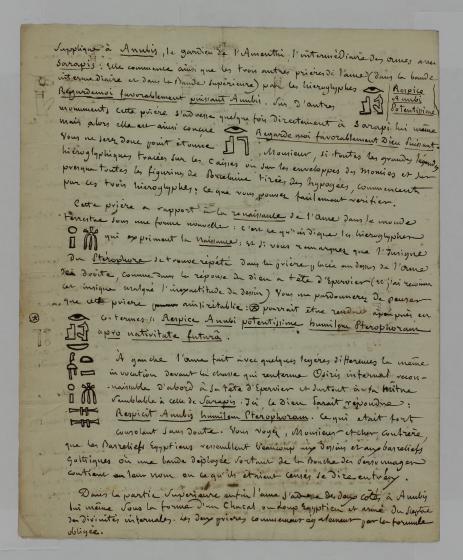 Supplique à Anubis, le gardien de l'Amenthi, l'intermédiaire des ames avec
Sarapis: Elle commence ainsi que les trois autres prières de l'ame (dans la bande
intermédiaire et dans la Bande Supérieure) par les hieroglyphes
Respice
Anubi
Potentissime
Regarde moi favorablement puissant Anubis. Sur d'autres
monumens cette prière s'adresse quelquefois directement à Sarapis lui même
mais alors elle est ainsi conçue
Regarde moi favorablement Dieu Puissant.
Vous ne serez donc point étonné
Monsieur, si toutes les grandes
hiéroglyphiques tracées sur les Caisses ou sur les enveloppes des Momies et sur
presque toutes les figurines de Porcelaine tirées des hypogées, commencent
par ces trois hieroglyphes; ce que vous pouvez facilement vérifier.
Cette prière a rapport à la renaissance de l'Ame dans le monde
Terrestre sous une forme nouvelle: c'est ce qu'indique les hieroglyphes
qui expriment la Naissance; et si vous remarquez que l'Insigne
Du Ptérophore se trouve répété dans la prière, placée au dessus de l'Ame
à droite, comme dans la réponse du dieu à tête d'Epervier (et j'ai reconnu
cet insigne malgré l'inexactitude du dessin) Vous me pardonnerez de penser
que cette prière ainsi rétablie: pourrait être rendue à peu près en
ces termes: Respice Anubi potentissime humilem Pterophoram
a pro nativitate futurâ.
A gauche l'ame fait avec quelques légères différences la même
invocation devant la chasse qui renferme Osiris infernal recon-
naissable d'abord à sa tête d'Epervier et surtout à sa Mitre
semblable à celle de Sarapis. Ici ce dieu parait répondre:
Respicit Anubis humilem Pterophoram. Ce qui était fort
consolant sans doute. Vous voyez, Monsieur et cher confrère,
que les Basreliefs Egyptiens ressemblent beaucoup aux dessins et aux basreliefs
gothiques où une bande déployée sortant de la Bouche des Personnages
contient ou leur nom ou ce qu'ils étaient censés se dire entr'eux.
Dans la partie Supérieure enfin l'ame s'adresse des deux cotés, à Anubis
lui même sous la forme d'un Chacal ou Loup Egyptien et armé du
des divinités infernales. Les deux prières commencent également par la formule
obligée.